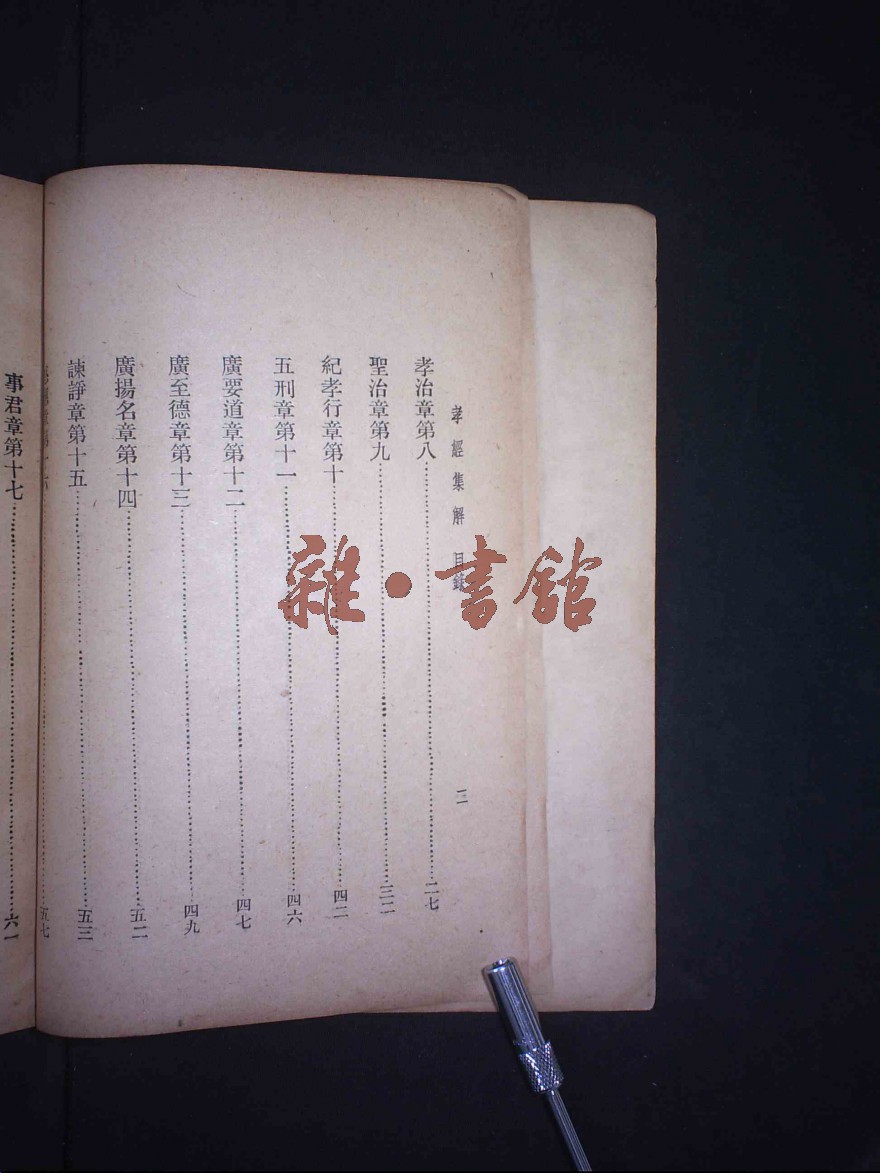 孝經集解 目錄 二
孝治章第八 二七
聖治章第九 三二
紀孝行章第十 四二
五刑章第十一 四六
廣要道章第十二 四七
廣至德章第十三 四九
廣揚名章第十四 五二
諫諍章第十五 五三
五七
事君章第十七 六一
雜·書館